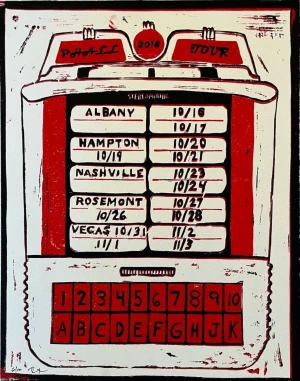 PHALL 2018 TOUR
STEREOPHONIC
ALBANY 10/16
10/17
HAMPTON 10/20
10/19 10/21
NASHVILLE 10/23
10/24
ROSEMONT 10/27
10/26 10/28
VEGAS 10/31 11/2
11/1 11/3
1 2 3 4 5 6 7 8 9 10
A B C D E F G H J K